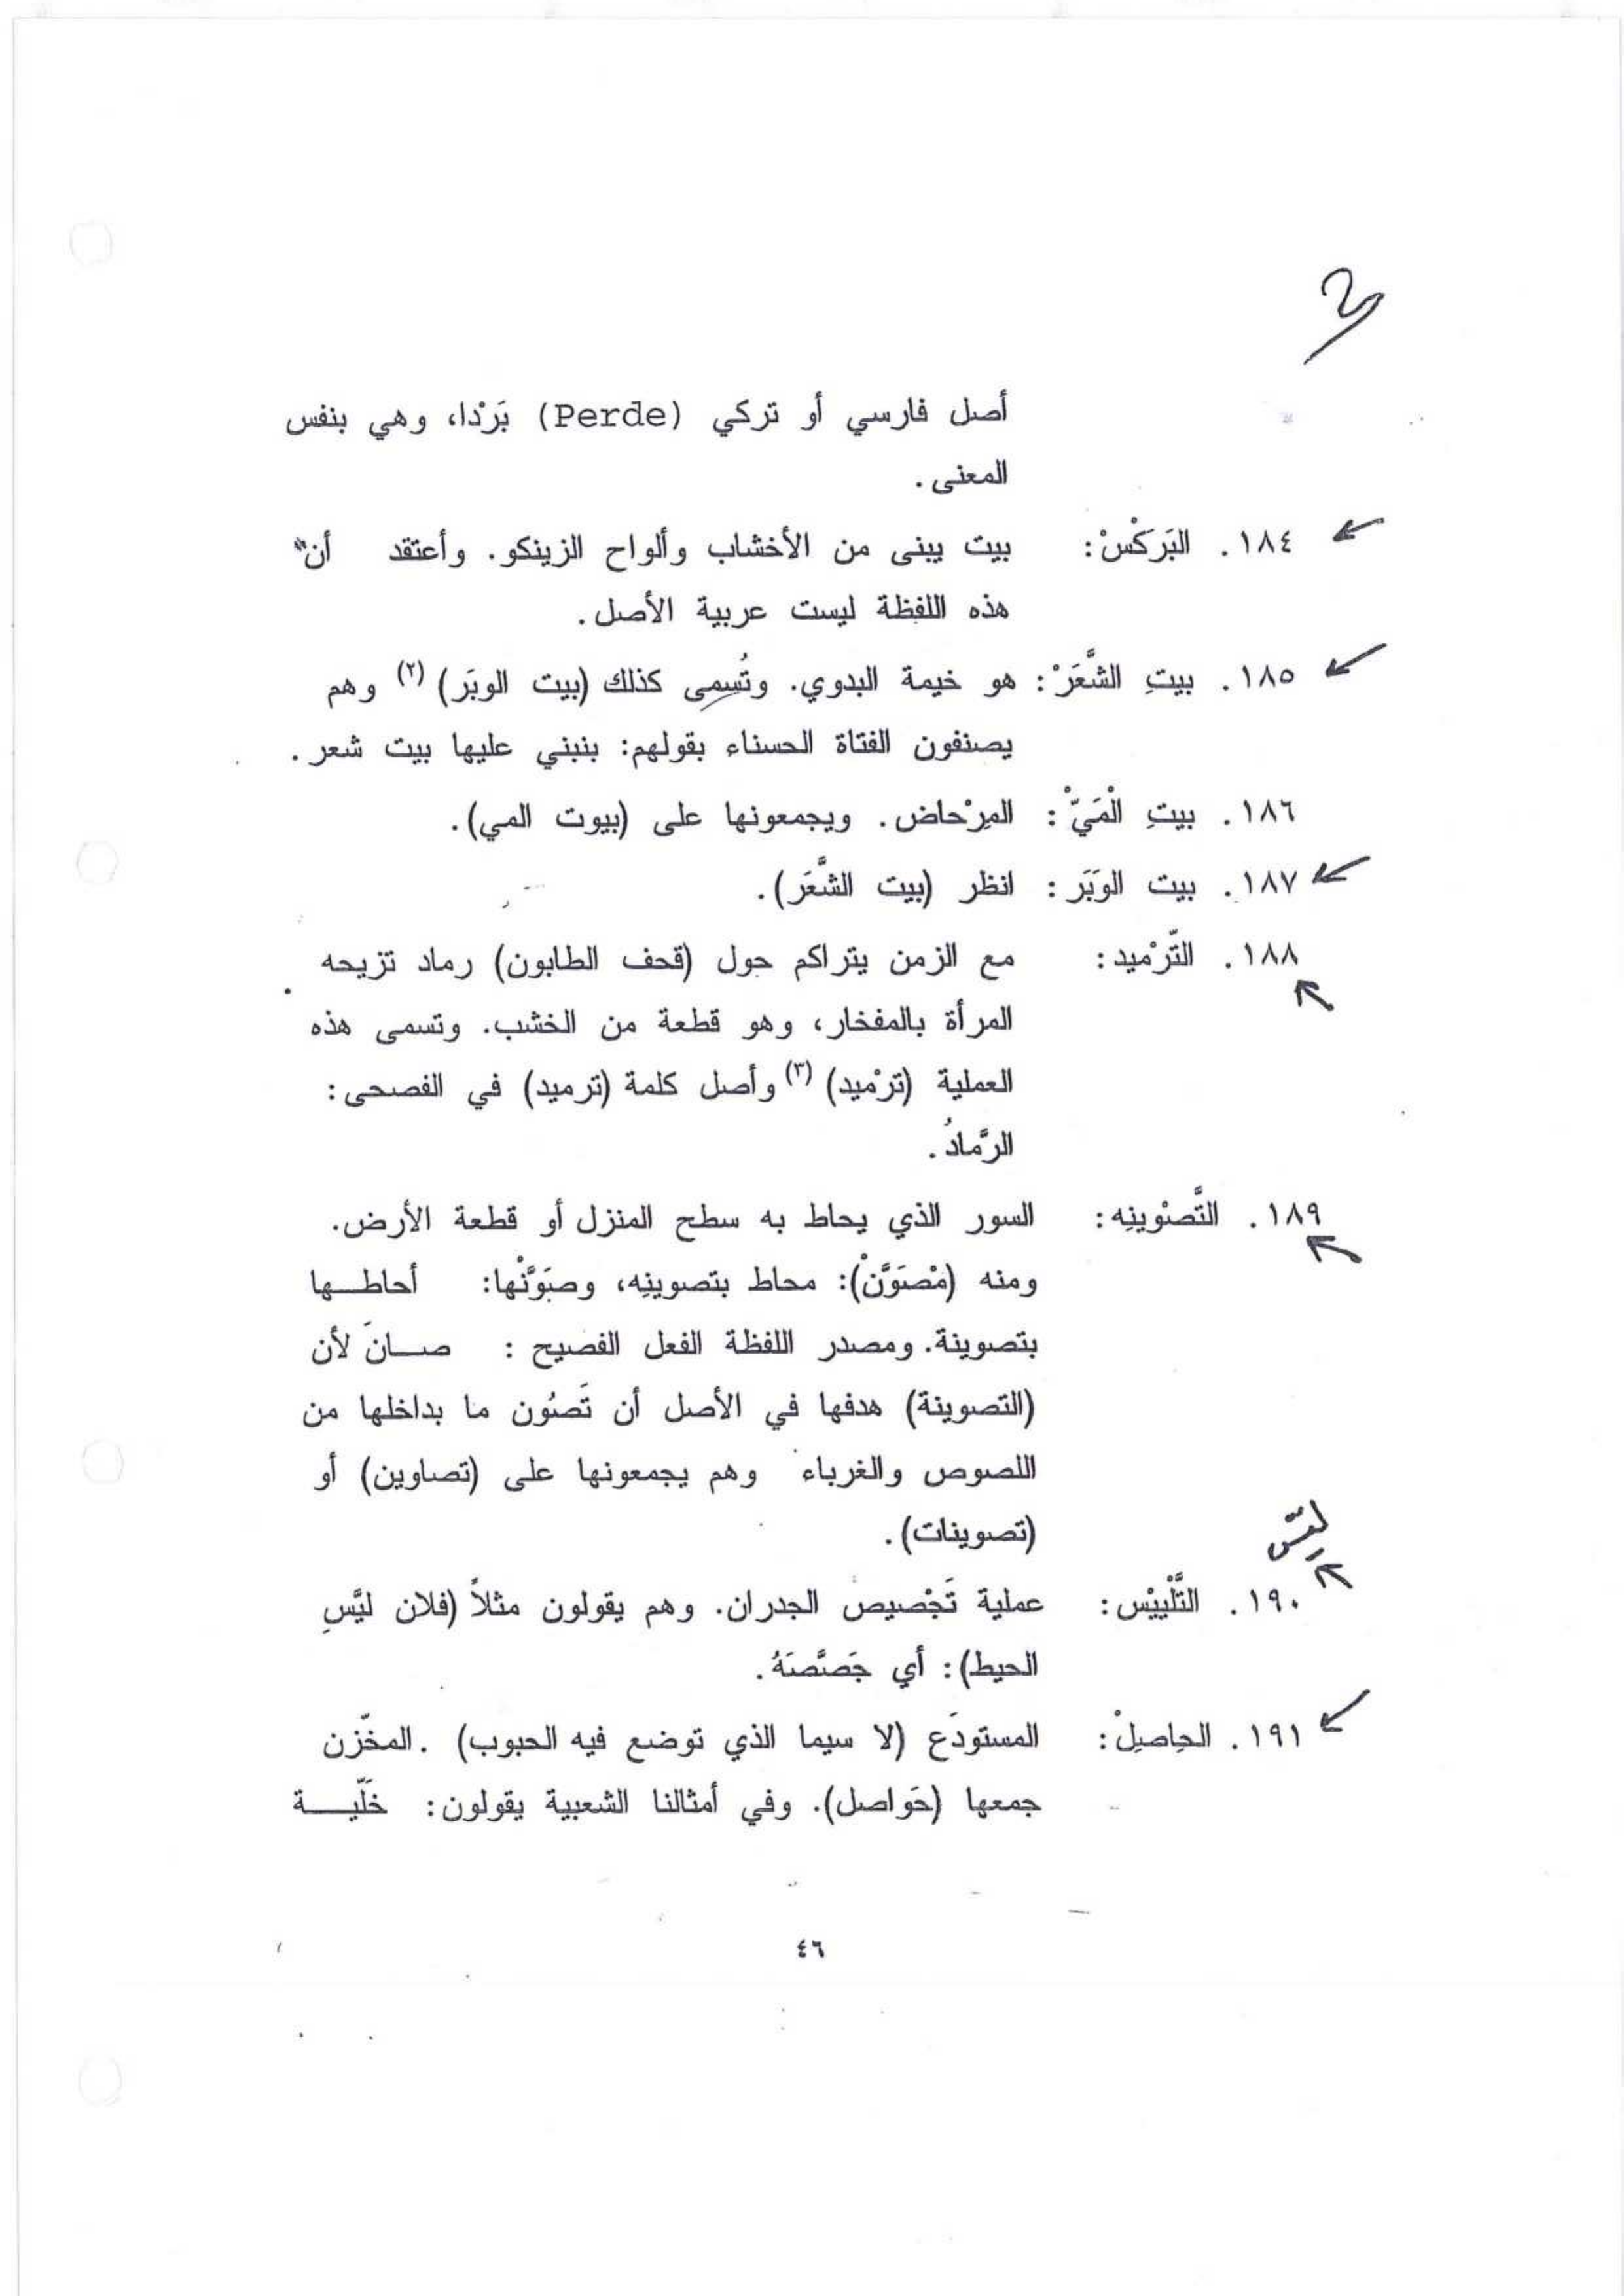 أصل فارسي أو تركي (Perde) بَرْدا، وهي بنفس
المعنى.
١٨٤. البَركْسْ: بيت يبنى من الأخشاب وألواح الزينكو. وأعتقد أن
هذه اللفظة ليست عربية الأصل.
١٨٥. بيتِ الشَّعَرْ: هو خيمة البدوي. وتُسمى كذلك (بيت الوبَر) (٢) وهم
يصنفون الفتاة الحسناء بقولهم: بنبني عليها بيت شعر.
١٨٦. بيتِ الْمَيّْ: المِرْحاض. ويجمعونها على (بيوت المي).
١٨٧. بيت الوَبَر: انظر (بيت الشَّعَر).
١٨٨. التَّرْميد: مع الزمن يتراكم حول (قحف الطابون) رماد تزيحه
المرأة بالمفخار، وهو قطعة من الخشب. وتسمى هذه
العملية (ترْميد) (٣) وأصل كلمة (ترميد) في الفصحى:
الرَّمادُ.
١٨٩. التَّصْوينِه: السور الذي يحاط به سطح المنزل أو قطعة الأرض.
ومنه (مْصَوَّنْ): محاط بتصوينِه، وصَوَّنْها: أحاطـها
بتصوينة. ومصدر اللفظة الفعل الفصيح: صـانَ لأن
(التصوينة) هدفها في الأصل أن تَصُون ما بداخلها من
اللصوص والغرباء وهم يجمعونها على (تصاوين) أو
(تصوينات).
ليّس
١٩٠. التَّلْييْس: عملية تَجْصيص الجدران. وهم يقولون مثلاً (فلان ليَّسِ
الحيط): أي جَصَّصَهُ.
١٩١. الحاصِلْ: المستودَع (لا سيما الذي توضع فيه الحبوب). المخّزن
جمعها (حَواصل). وفي أمثالنا الشعبية يقولون: خَلّيـة
٤٦